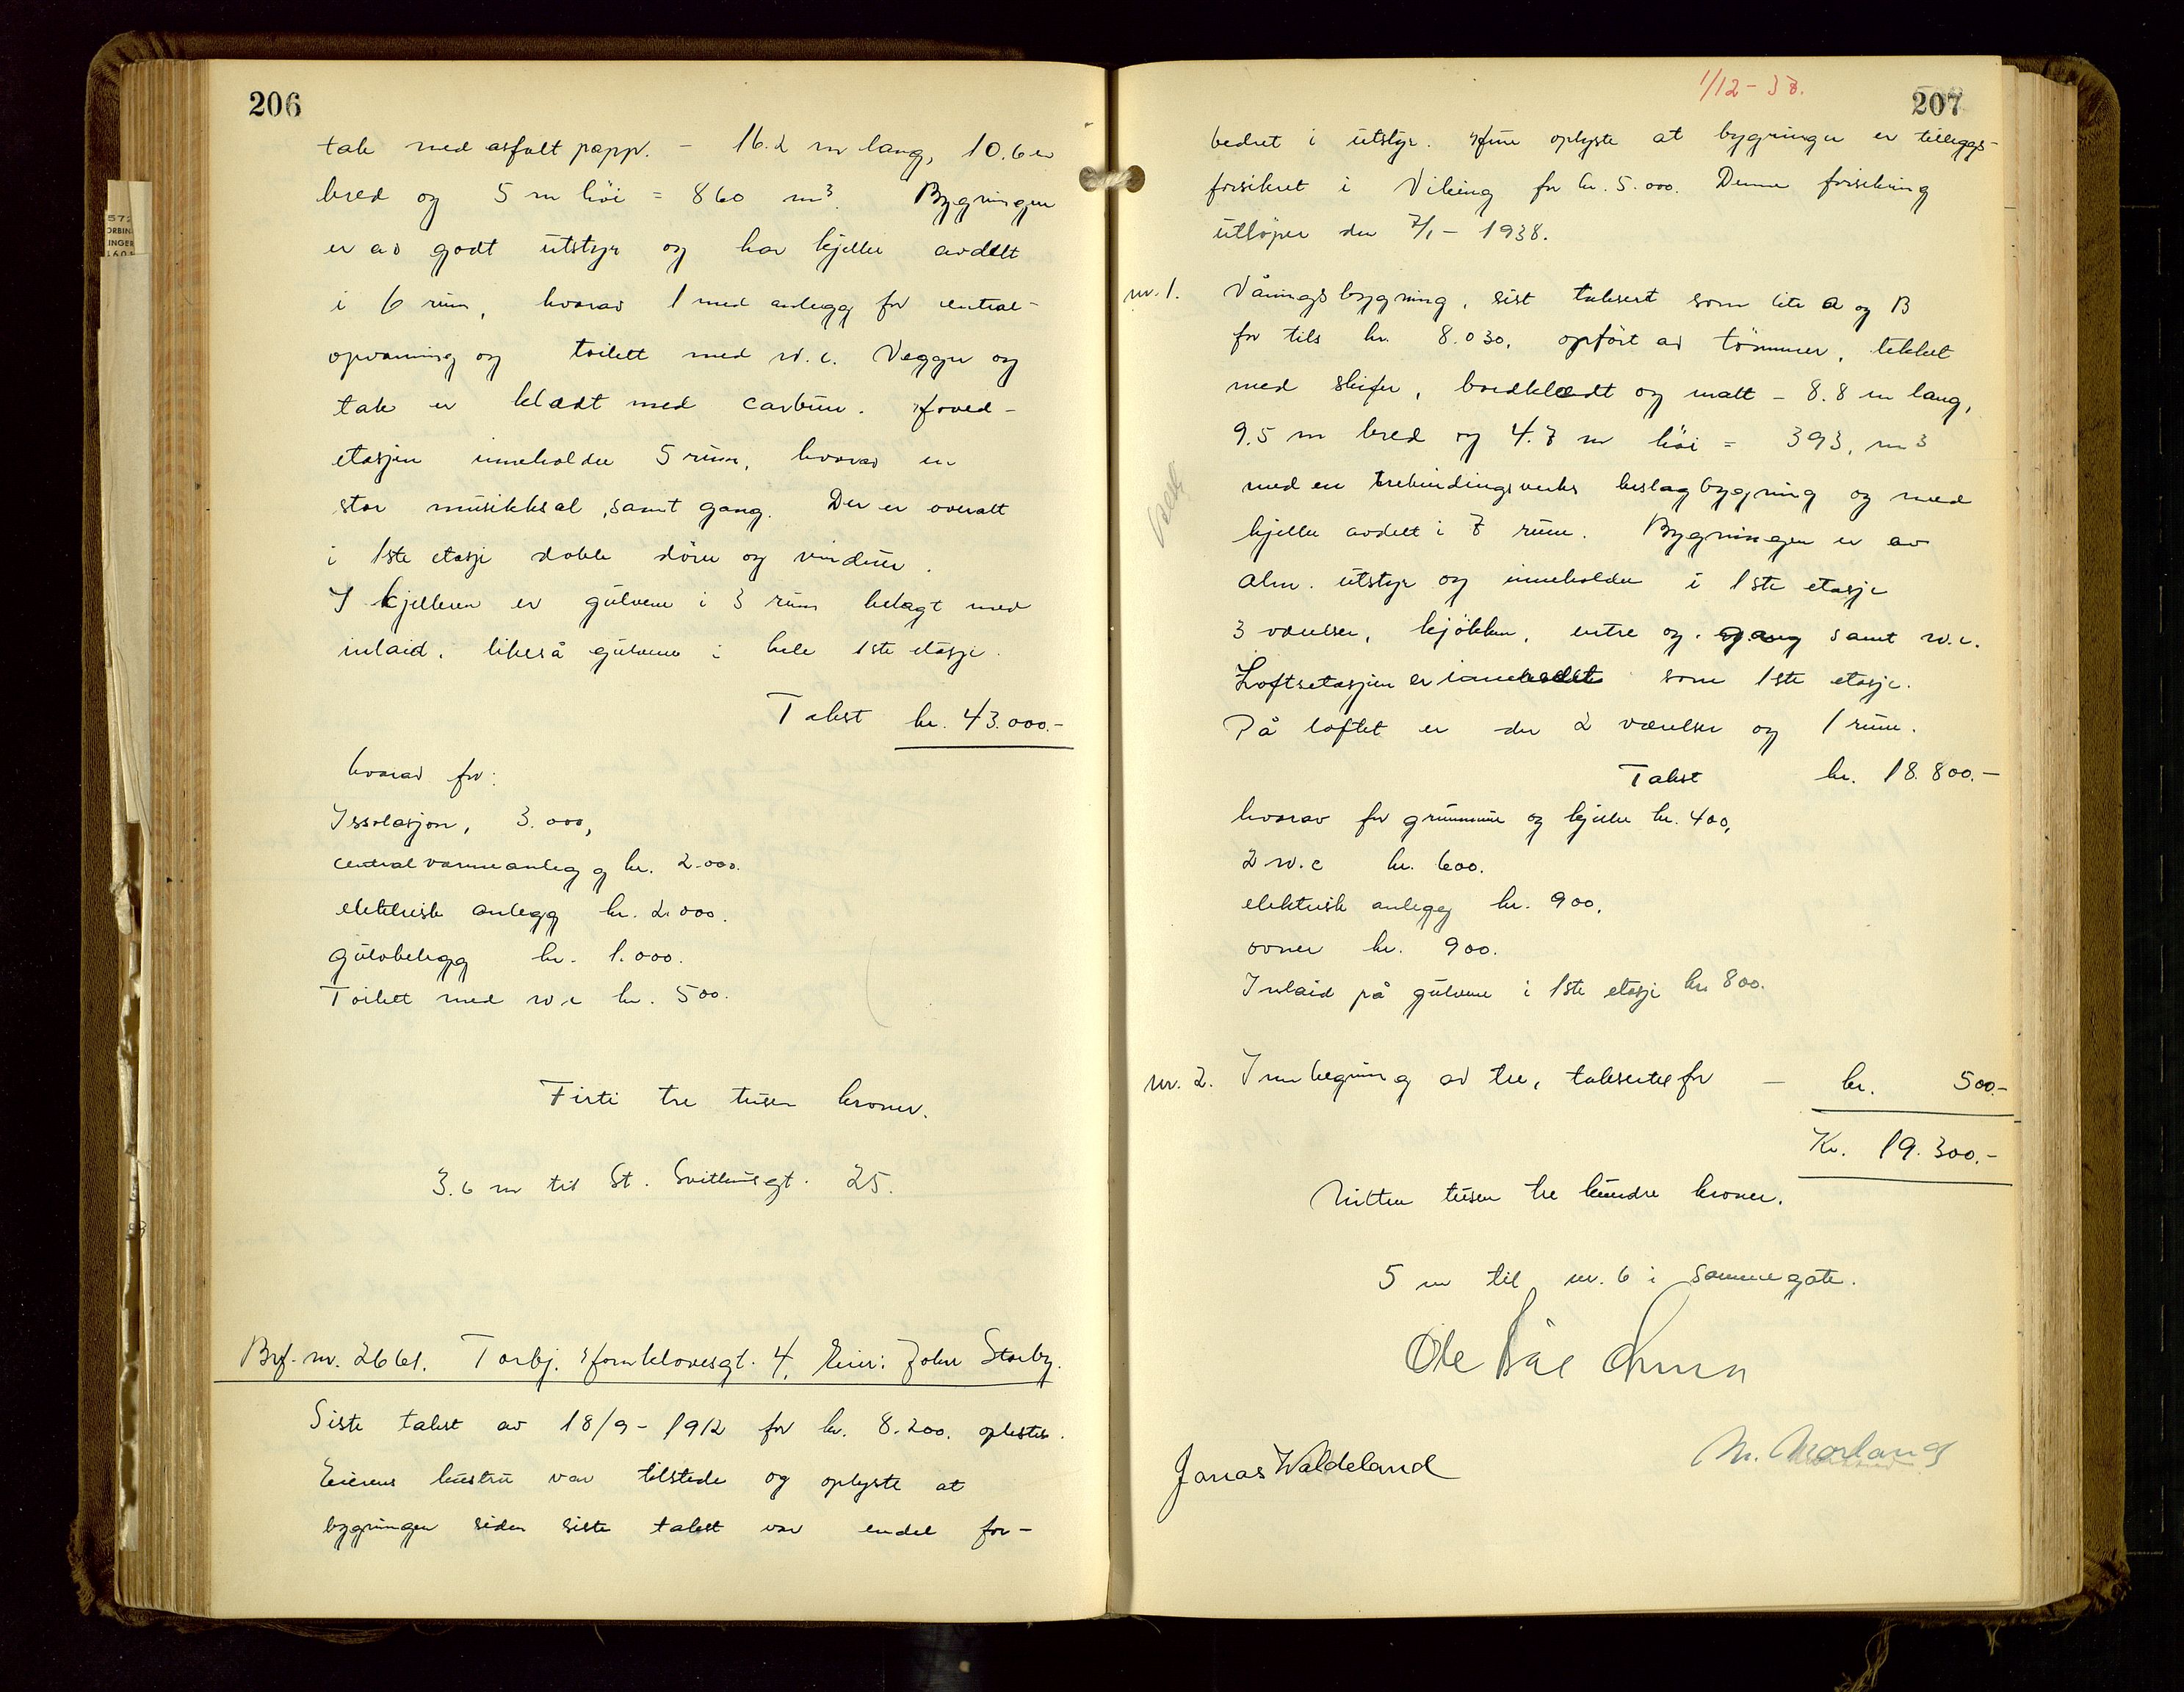 206
tak med asfalt papp. - 16.2 m lang, 10.6 m
bred og 5 m høi = 860 m³. Bygningen
er av godt utstyr og har kjeller avdelt
i 6 rum, hvorav 1 med anlegg for central-
opvarming og toilett med w.c. Vegger og
tak er klædt med carbun. Hoved-
etasjen inneholder 5 rum, hvorav en
stor musikksal, samt gang. Der er overalt
i 1ste etasje doble döre og vinduer.
I kjelleren er gulvene i 3 rum belagt med
inlaid, likeså gulvene i hele 1ste etasje.
Takst kr. 43.000.-
hvorav for:
Issolasjon, 3.000,
centralvarmeanlegg kr. 2.000.
elektrisk anlegg kr. 2.000.
gulvbelegg kr. 1.000.
Toilett med w.c kr. 500.
Firti tre tusen kroner.
3.6 m til St. Svithunsgt. 25.
Brf. nr. 2661. Torbj. Hornklovesgt. 4. Eier: John Storby.
Siste takst av 18/9 - 1912 for kr. 8.200. oplestes.
Eierens hustru var tilstede og oplyste at
bygningen siden siste takst var endel for-
1/12 - 37.
207
bedret i utstyr. Hun oplyste at bygningen er tilleggs-
forsikret i Viking for kr. 5.000. Denne forsikring
utlöper den 7/1 - 1938.
nr. 1. Våningsbygning, sist taksert som lite a og B
for tils kr. 8.030, opfört av tömmer, tekket
med skifer, bordklædt og malt - 8.8 m lang,
9.5 m bred og 4.7 m höi = 393, m³
med en trebindingsverks beslagbygning og med
kjeller avdelt i 7 rum. Bygningen er av
alm. utstyr og inneholder i 1ste etasje
3 værelser, kjökken, entre og gang samt w.c.
Loftsetasjen er innredet som 1ste etasje.
På loftet er der 2 værelser og 1 rum.
Takst kr. 18.800.-
hvorav for grunnmur og kjeller kr. 400,
2 w.c kr. 600.
elektrisk anlegg kr. 900,
ovner kr. 900.
Inlaid på gulvene i 1ste etasje kr 800.
nr. 2. Innhegning av tre, taksertes for - kr. 500.-
Kr. 19.300.-
Nitten tusen tre hundre kroner.
5 m til nr. 6 i samme gate.
Jonas Waldeland